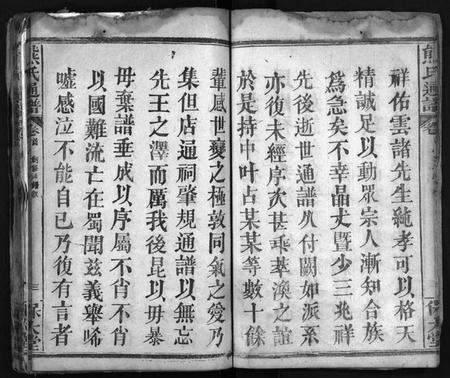 熊氏通譜
卷
保大堂
祥佑雲諸先生純孝可以格天
精誠足以動眾宗人漸知合族
爲急矣不幸晶丈暨少三兆祥
先後逝世通譜久付闕如派系
亦復未經序次甚乖萃渙之誼
於是持中叶占某某等數十餘
輩感世變之極敦同氣之愛乃
集但店逼祠肇規通譜以無忘
先王之澤而厲我後昆以毋暴
毋棄譜垂成以序屬不肖不肖
以國難流亡在蜀聞茲義舉唏
噓感泣不能自已乃復有言者
熊氏通譜
卷首
三
保大堂